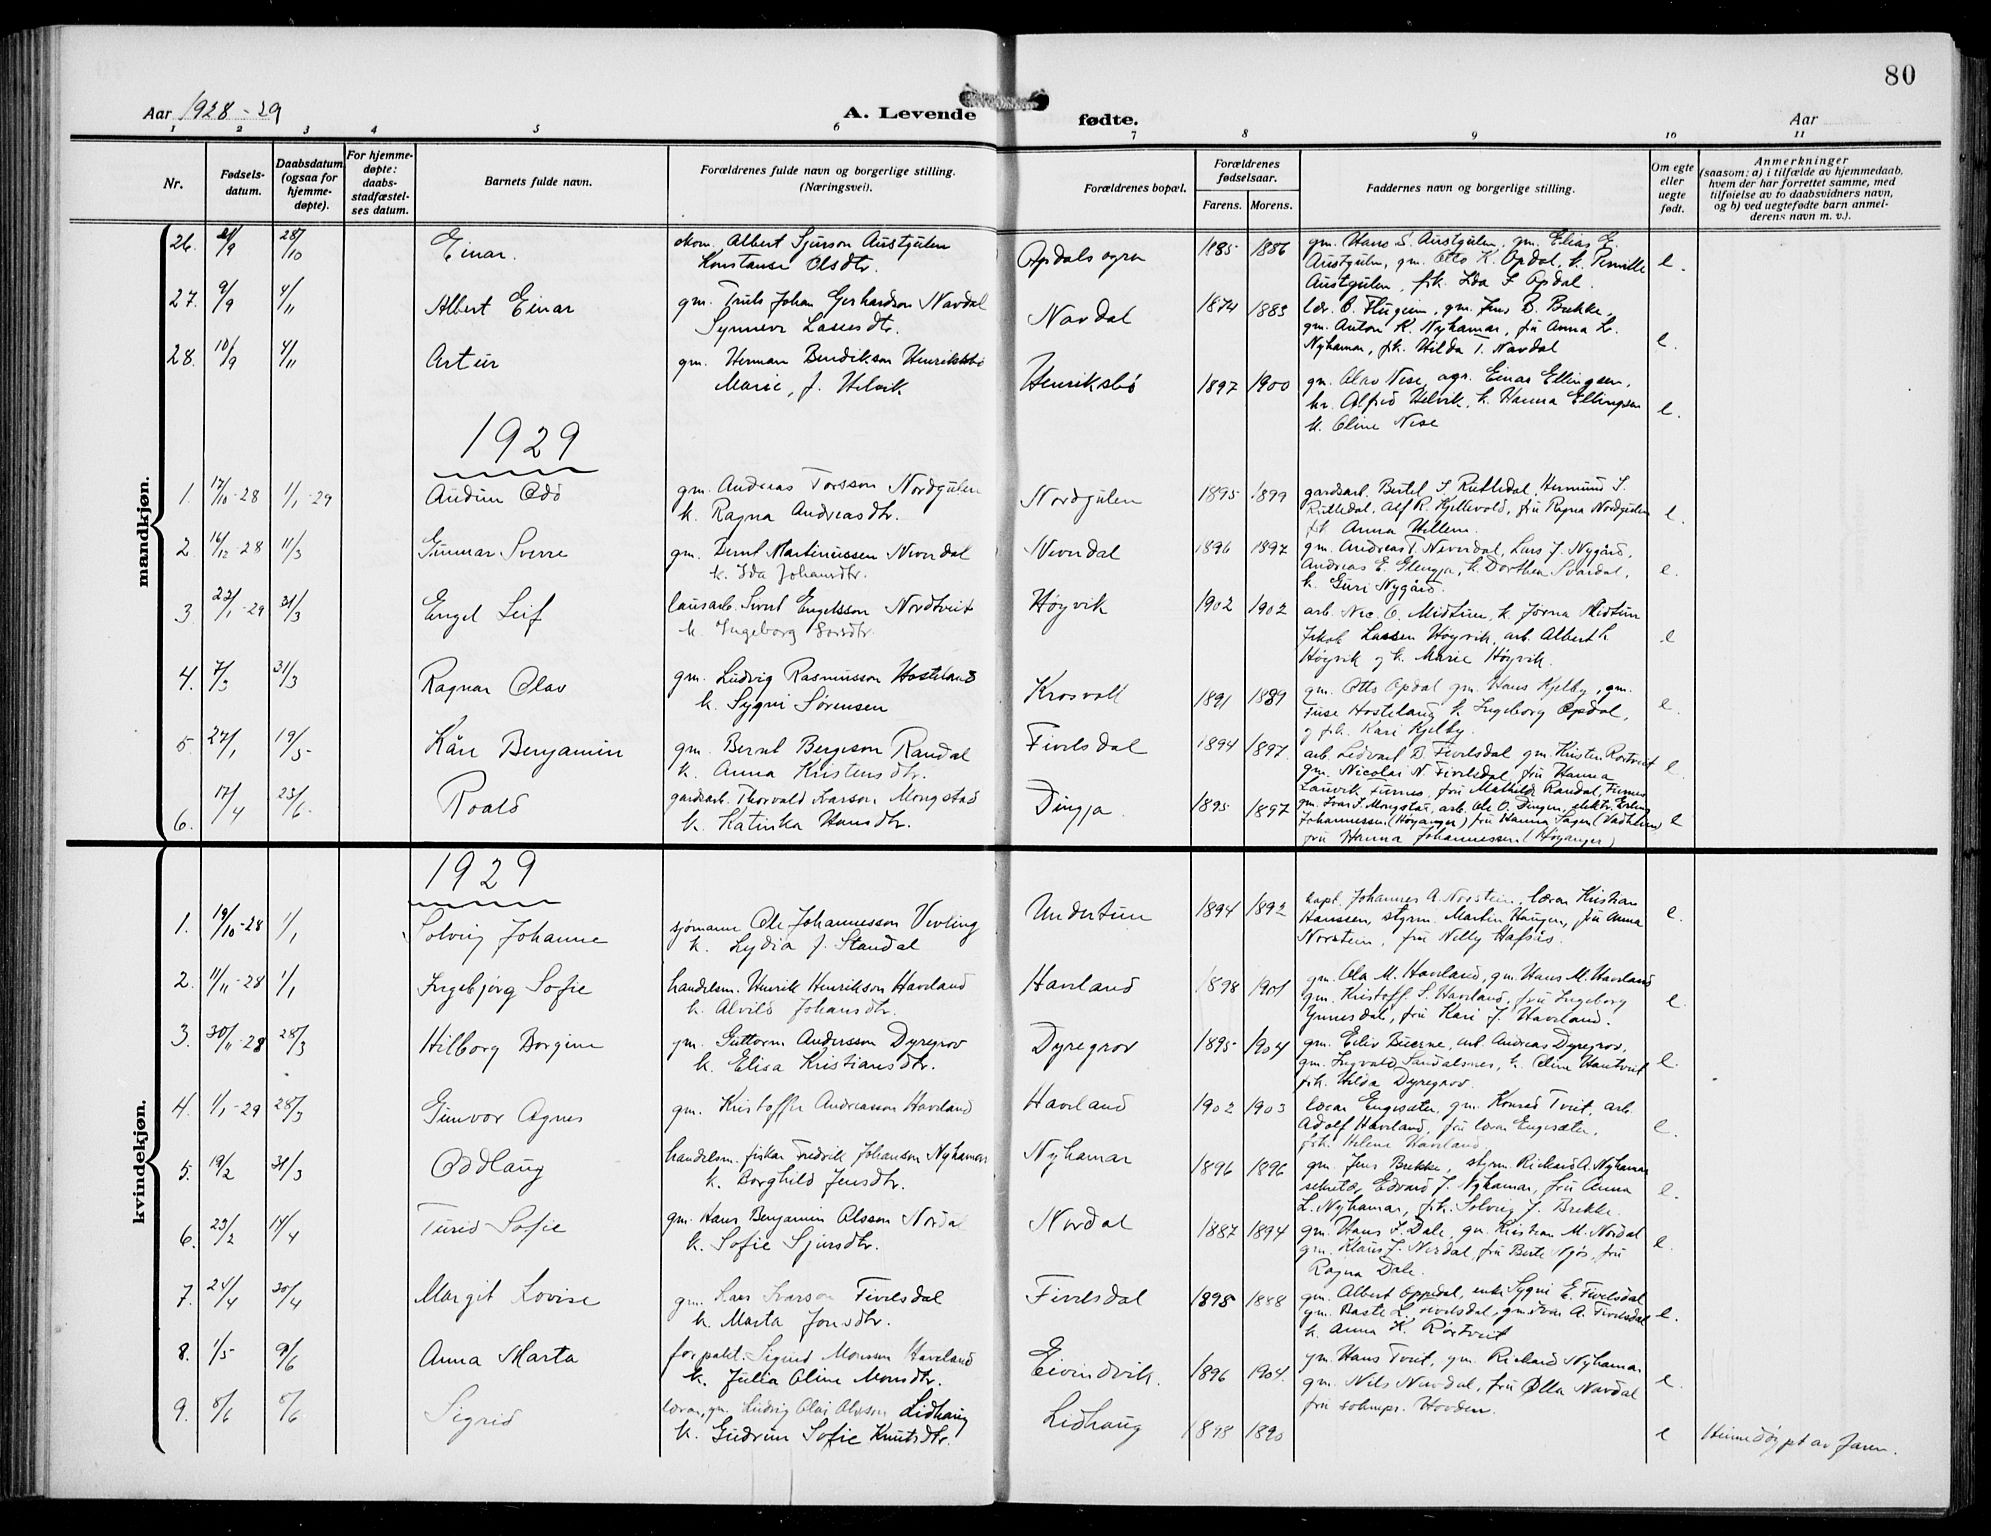 80
Aar 1928-29
A. Levende
fødte.
Aar
1 2 3 4 5 6 7 8 9 10 11
Nr.
Fødsels-
datum.
Daabsdatum
(ogsaa for
hjemme-
døpte).
For hjemme-
døpte:
daabs-
stadfæstel-
ses datum.
Barnets fulde navn.
Forældrenes fulde navn og borgerlige stilling.
(Næringsvei).
Forældrenes bopæl.
Forældrenes
fødselsaar.
Farens. Morens.
Faddernes navn og borgerlige stilling.
Om egte
eller
uegte
født.
Anmerkninger
(saasom: a) i tilfælde av hjemmedaab,
hvem der har forrettet samme, med
tilføielse av to daabsvidners navn,
og b) ved uegtefødte barn anmel-
derens navn m. v.).
mandkjøn.
26. 28/10 Einar. Albert Sjurson Austgulen Opdalsøyra 1885 1886 gm. Hans S. Austgulen, gm. Elias E.
Konstanse Olsdtr. Austgulen, gm. Otto K. Opdal, k. Pernille e.
Austgulen, frk. Ida S. Opdal.
27. 9/9 4/11 Albert Einar gm. Truls Johan Gerhardson Navdal Navdal 1874 1883 lær. O. Flugeim, gm. Jens B. Brekke,
Synneve Lassesdtr. gm. Anton R. Nyhamar, fru Anna L.
Nyhamar, frk. Hilda T. Navdal e.
28. 10/9 4/11 Artur gm. Herman Bendikson Henriksbø Henriksbø 1897 1900 gm. Olav Nese, agr. Einar Ellingsen,
Marie, f. Helvik hr. Alfred Helvik, k. Hanna Ellingsen e.
k. Oline Nese
1929
1. 17/10-28 1/1-29 Audun Odd gm. Andreas Torsson Nordgulen Nordgulen 1895 1899 gardsarb. Bertel S. Rutledal, Hermund S.
k. Ragna Andreasdtr. Rutledal, Alf R. Kjellevold, fru Ragna Nordgulen e.
frk. Anna Hellem.
2. 16/12-28 11/3 Gunnar Sverre gm. Bernt Martinussen Neverdal Neverdal 1896 1897 gm. Andreas T. Neverdal, Lars J. Nygård,
k. Ida Johansdtr. Andreas E. Glengja, k. Dorthea Svardal, e.
k. Guri Nygård.
3. 22/1-29 31/3 Engel Leif lausarb. Sivert Engelsson Nordtveit Høyvik 1902 1902 arb. Nic. O. Midtun, k. Jorna Midtun
k. Ingeborg Larsdtr. Jakob Lassen Høyvik, arb. Albert L. e
Høyvik og k. Marie Høyvik.
4. 7/3 31/3 Ragnar Olav gm. Ludvig Rasmusson Hosteland Krosvoll 1891 1889 gm. Otto Opdal gm. Hans Kjelby, gm.
k. Sygni Sørensen Hosteland k. Ingeborg Opdal, e.
og frk. Kari Kjelby.
5. 27/1 19/5 Kåre Benjamin gm. Bernt Bergeson Randal Fivelsdal 1894 1897. arb. Ledvart B. Fivelsdal gm. Kristen Rortveit e.
k. Anna Kristensdtr. gm. Nicolai N. Fivelsdal, fru Hanna
Lauvik Furnes, fru Mathilde Randal, Furnes
6. 17/4 23/6. Roald gardsarb. Thorvald Ivarson Mongstad Dingja. 1895 1897 gm. Ivar J. Mongstad, arb. Ole O. Dingen, elektr. Erling
k. Katinka Hansdtr. Johannessen (Høyanger) fru Hanna (Vadheim) e
fru Hanna Johannessen (Høyanger)
kvindekjøn.
1929
1. 19/10-28 1/1 Solveig Johanne sjømann Ole Johannesson Verling Undertun 1894 1892 kapt. Johannes A. Norstein, lærar Kristian e.
k. Lydia f. Standal Hanssen, styrm. Martin Haugen, fru Anna
Norstein, fru Nelly Hafsås.
2. 11/11-28 1/1 Ingebjørg Sofie handelsm. Henrik Henrikson Haveland Haveland 1898 1901 gm. Ola M. Haveland, gm. Hans M. Haveland
k. Alvild Johansdtr. gm. Kristoff. S. Haveland, fru Ingeborg e.
Ynnesdal, fru Kari J. Haveland.
3. 30/11-28 28/3 Hilborg Borgine gm. Guttorm Andersson Dyregrov Dyregrov 1895 1904 gm. Eiliv Buerne, arb. Andreas Dyregrov,
k. Elisa Kristiansdtr. gm. Ingvald Sandalsnes, k. Oline Hantveit e.
frk. Hilda Dyregrov.
4. 1/1-29 28/3 Gunvor Agnes gm. Kristoffer Andreasson Haveland Haveland 1902 1903 lærar Engesæter, gm. Konrad Tveit, arb.
Adolf Haveland, fru lærar Engesæter, e.
frk. Helene Haveland.
5. 19/2 31/3 Oddlaug handelsm. fiskar Fredrik Johanson Nyhamar Nyhamar 1896 1896 gm. Jens Brekke, styrm. Rickard A. Nyhamar
k. Borghild Jensdtr. sekretær Edvard J. Nyhamar, fru Anna e.
L. Nyhamar, frk. Solveig J. Brekke.
6. 23/2 14/4 Turid Sofie gm. Hans Benjamin Olsson Nordal Nordal 1887 1894 gm. Hans J. Dale, gm. Kristian M. Nordal
k. Sofie Sjursdtr. gm. Klaus J. Nordal, fru Berte Njøs, fru e.
Ragna Dale.
7. 24/4 30/4 Margit Lovise gm. Lars Ivarson Fivelsdal Fivelsdal 1898 1888 gm. Albert Oppedal, enke Sygni E. Fivelsdal
k. Marta Jonsdtr. gm. Baste L. Fivelsdal, gm. Ivar A. Fivelsdal e.
k. Anna K. Rørtveit
8. 1/5 9/6 Anna Marta forpakt. Sigurd Monsson Haveland Eivindvik. 1896 1904. gm. Hans Tveit, gm. Rickard Nyhamar
k. Julia Oline Monsdtr. gm. Nils Navdal, fru Olla Navdal e.
fru soknepr. Hovden.
9. 8/6 8/6 Sigrid lærar, gm. Ludvig Olai Olsson Lidhaug Lidhaug 1898 1890 e Heimedøypt av faren.
k. Gudrun Sofie Knutsdtr.